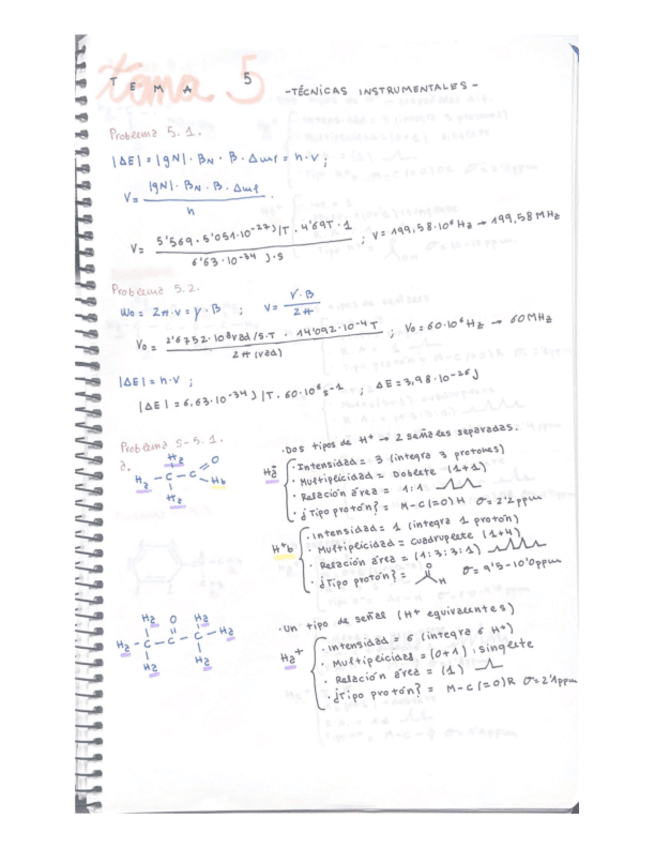 tema 5
TEMA 5
-TÉCNICAS INSTRUMENTALES-
Problema 5.1.
|ΔE| = |gN|· BN · B · Δmf = h·v;
V = |gN|· BN · B · Δmf / h
V = 5'569 · 5'051·10⁻²⁷ J/T · 4'69T · 1 / 6'63·10⁻³⁴ J·s ; V = 199,58·10⁶ Hz → 199,58 MHz
Problema 5.2.
ω₀ = 2π·v = γ·B ; V = γ·B / 2π
V₀ = 2'6752·10⁸ rad/s·T · 14'092·10⁻⁴ T / 2π (rad) ; V₀ = 60·10⁶ Hz → 60 MHz
|ΔE| = h·v ;
|ΔE| = 6,63·10⁻³⁴ J/T · 60·10⁶ s⁻¹ ; ΔE = 3,98·10⁻²⁶ J
Problema S-5.1.
a.
Ha
Ha - C - C O
Hb
Ha
·Dos tipos de H⁺ → 2 señales separadas.
Ha⁺
· Intensidad = 3 (integra 3 protones)
· Multiplicidad = Doblete (1+1)
· Relación área = 1:1
· ¿Tipo protón? = M-C(=O)H σ=2'2ppm
H⁺b
· intensidad = 1 (integra 1 protón)
· Multiplicidad = cuadruplete (1+4)
· Relación área = (1:3:3:1)
· ¿Tipo protón? = O H σ = 9'5-10'0ppm
Ha O Ha
Ha - C - C - C - Ha
Ha Ha
·Un tipo de señal (H⁺ equivalentes)
Ha⁺
· intensidad = 6 (integra 6 H⁺)
· Multiplicidad = (0+1) : singlete
· Relación área = (1)
· ¿Tipo protón? = M-C(=O)R σ=2'1ppm